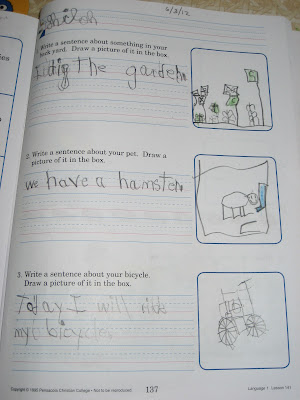 Shiloh
6/3/12
1. Write a sentence about something in your
back yard. Draw a picture of it in the box.
the garden
2. Write a sentence about your pet. Draw a
picture of it in the box.
we have a hamster
3. Write a sentence about your bicycle.
Draw a picture of it in the box.
Today I will ride
my bicycle
Copyright © Pensacola Christian College • Not to be reproduced.
137
Language 1 · Lesson 141